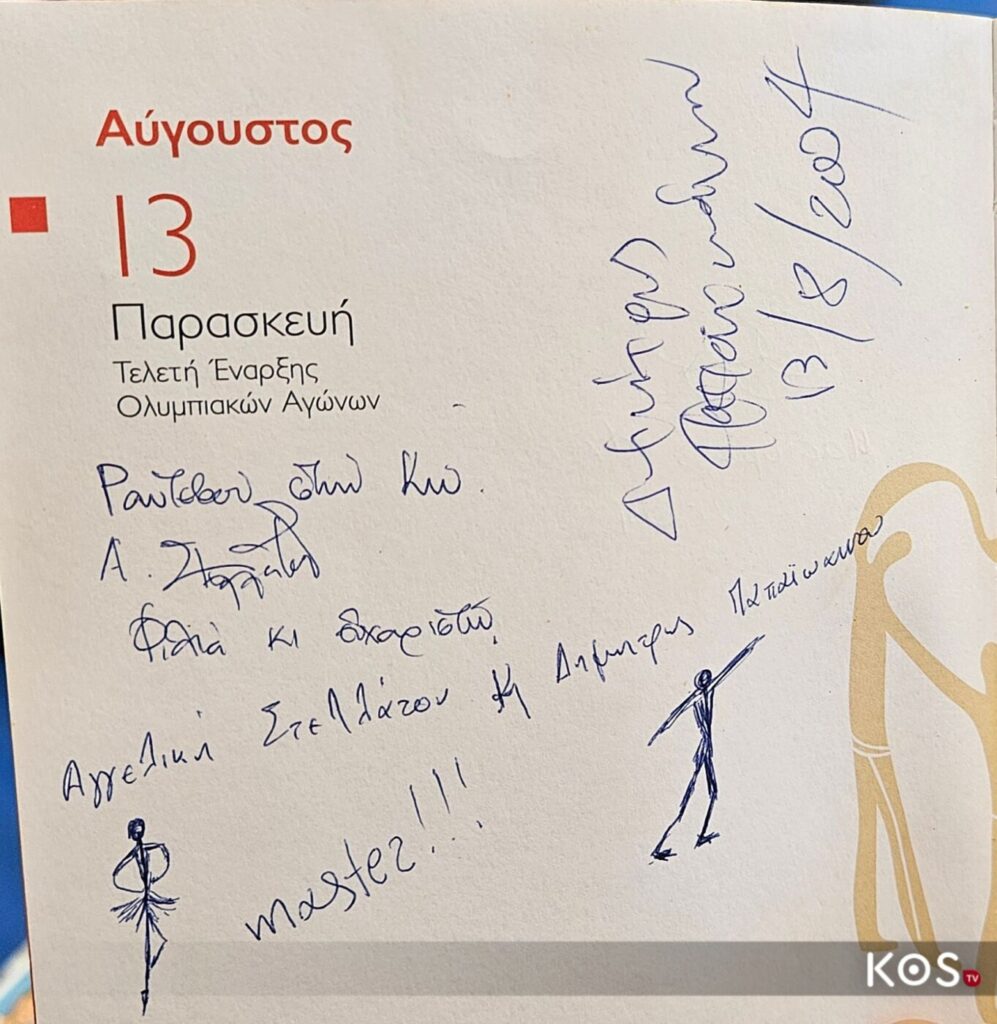 Αύγουστος
13
Παρασκευή
Τελετή Έναρξης
Ολυμπιακών Αγώνων
Ραντεβού στην Κω.
Α. Στελλάτου
Φιλιά κι ευχαριστώ
Αγγελική Στελλάτου Κη Δημητρης Παπαϊωαννου
master!!!
Δημήτρης
Παπαϊωάννου
13/8/2004
KOS TV